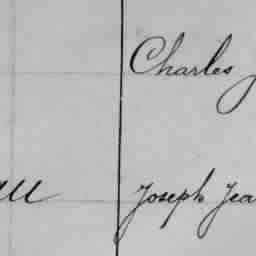 Charles
Joseph Jea